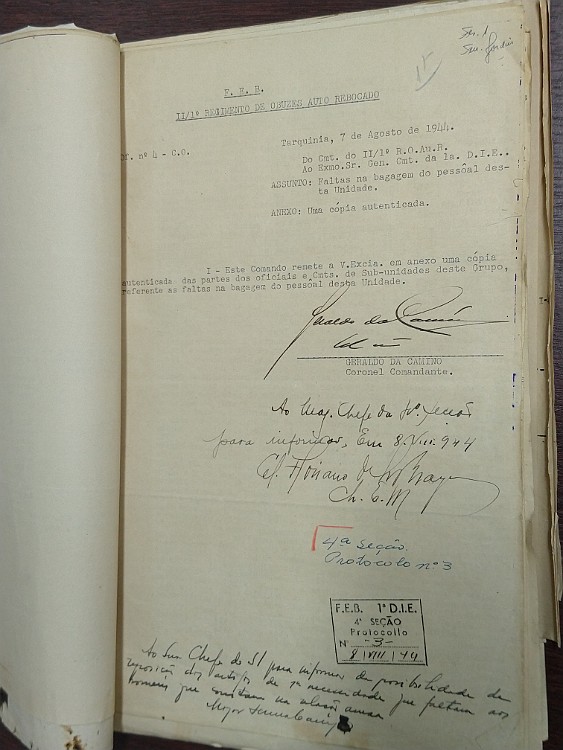 F. E. B.
II/1º REGIMENTO DE OBUZES AUTO REBOCADO
Tarquinia, 7 de Agosto de 1944.
Of. nº 4 - C.O.
Do Cmt. do II/1º R.O.Au.R.
Ao Exmo.Sr. Gen. Cmt. da 1a. D.I.E..
ASSUNTO: Faltas na bagagem do pessôal des-
ta Unidade.
ANEXO: Uma cópia autenticada.
I - Este Comando remete a V.Excia. em anexo uma cópia
autenticada das partes dos oficiais e Cmts. de Sub-unidades deste Grupo,
referente as faltas na bagagem do pessoal dessa Unidade.
Geraldo da Camino
GERALDO DA CAMINO
Coronel Comandante.
Ao Maj. Chefe da 4ª. Secção
para informar, Em 8.VIII.944
Cel. Floriano de L Brayner
Ch. E. M
4ª Seção
Protocolo nº 3
F.E.B. 1ª D.I.E.
4ª SEÇÃO
Protocollo
Nº -3-
8 | VIII | 44
Ao Snr. Chefe do SI para informar da possibilidade de
reposição dos artigos de 1ª necessidade que faltam aos
homens que constam na relação anexa
Major